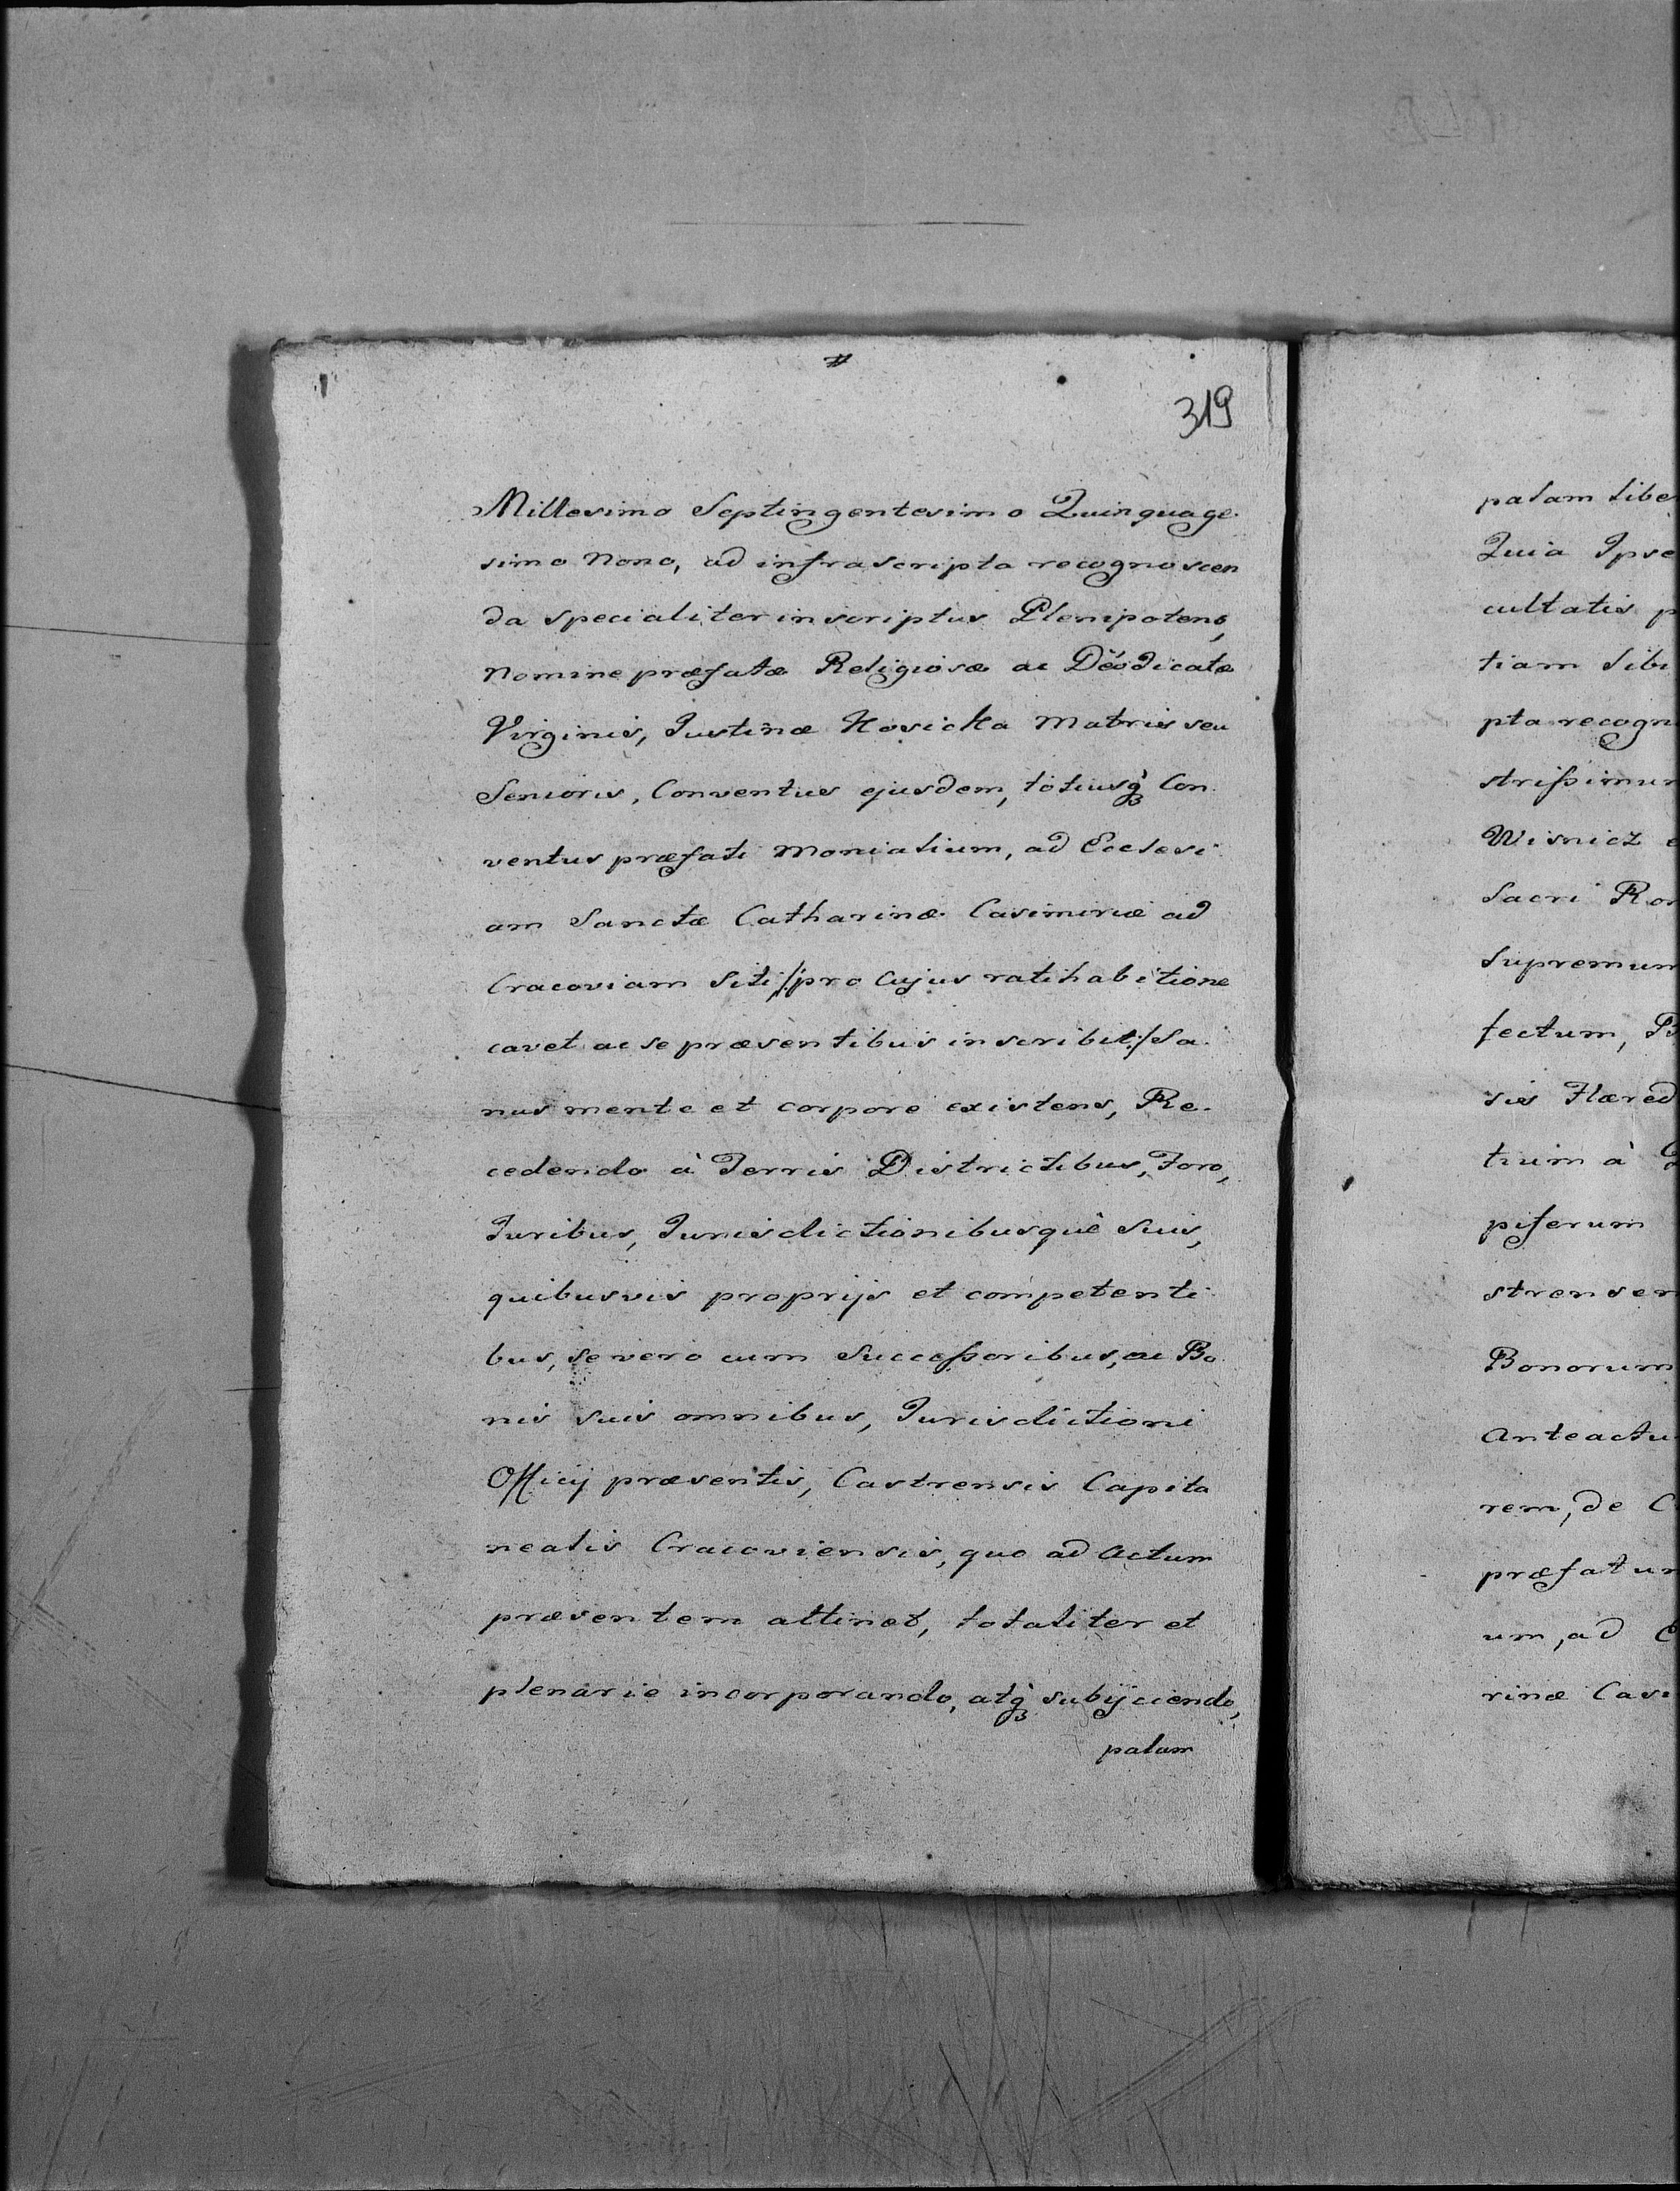 319
Millesimo Septingentesimo Quinquage
simo Nono, ad infrascripta recognoscen
da specialiter inscriptus Plenipotens,
Nomine præfatæ Religiosæ ac Dëodicatæ
Virginis, Justinæ Kosicka Matris seu
Senioris, Conventus ejusdem, totiusq̀ Con
ventus præfati Monialium, ad Ecclesi
am Sanctæ Catharinæ Casimiriæ ad
Cracoviam Siti /:pro cujus ratihabitione
cavet ac se præsentibus inscribit:/ Sa
nus mente et corpore existens, Re-
cedendo à Terris Districtibus, Foro,
Juribus, Jurisdictionibusquè Suis,
quibusvis proprijs et competenti
bus, se vero cum Successoribus, ac Bo
nis suis omnibus, Jurisdictioni
Officij præsentis, Castrensis Capita
nealis Cracoviensis, quo ad Actum
præsentem attinet, totaliter et
plenariè incorporando, atq̀ subijciendo,
palam
palam libe
Quia Ipse
cultatis p
tiam Sibi
pta recogn
strissimum
Wisnicz e
Sacri Rom
Supremum
fectum, B
sis Hæred
trum à
piferum
strensem
Bonorum
Anteactu
rem, de C
præfatum
um, ad E
rinæ Casi